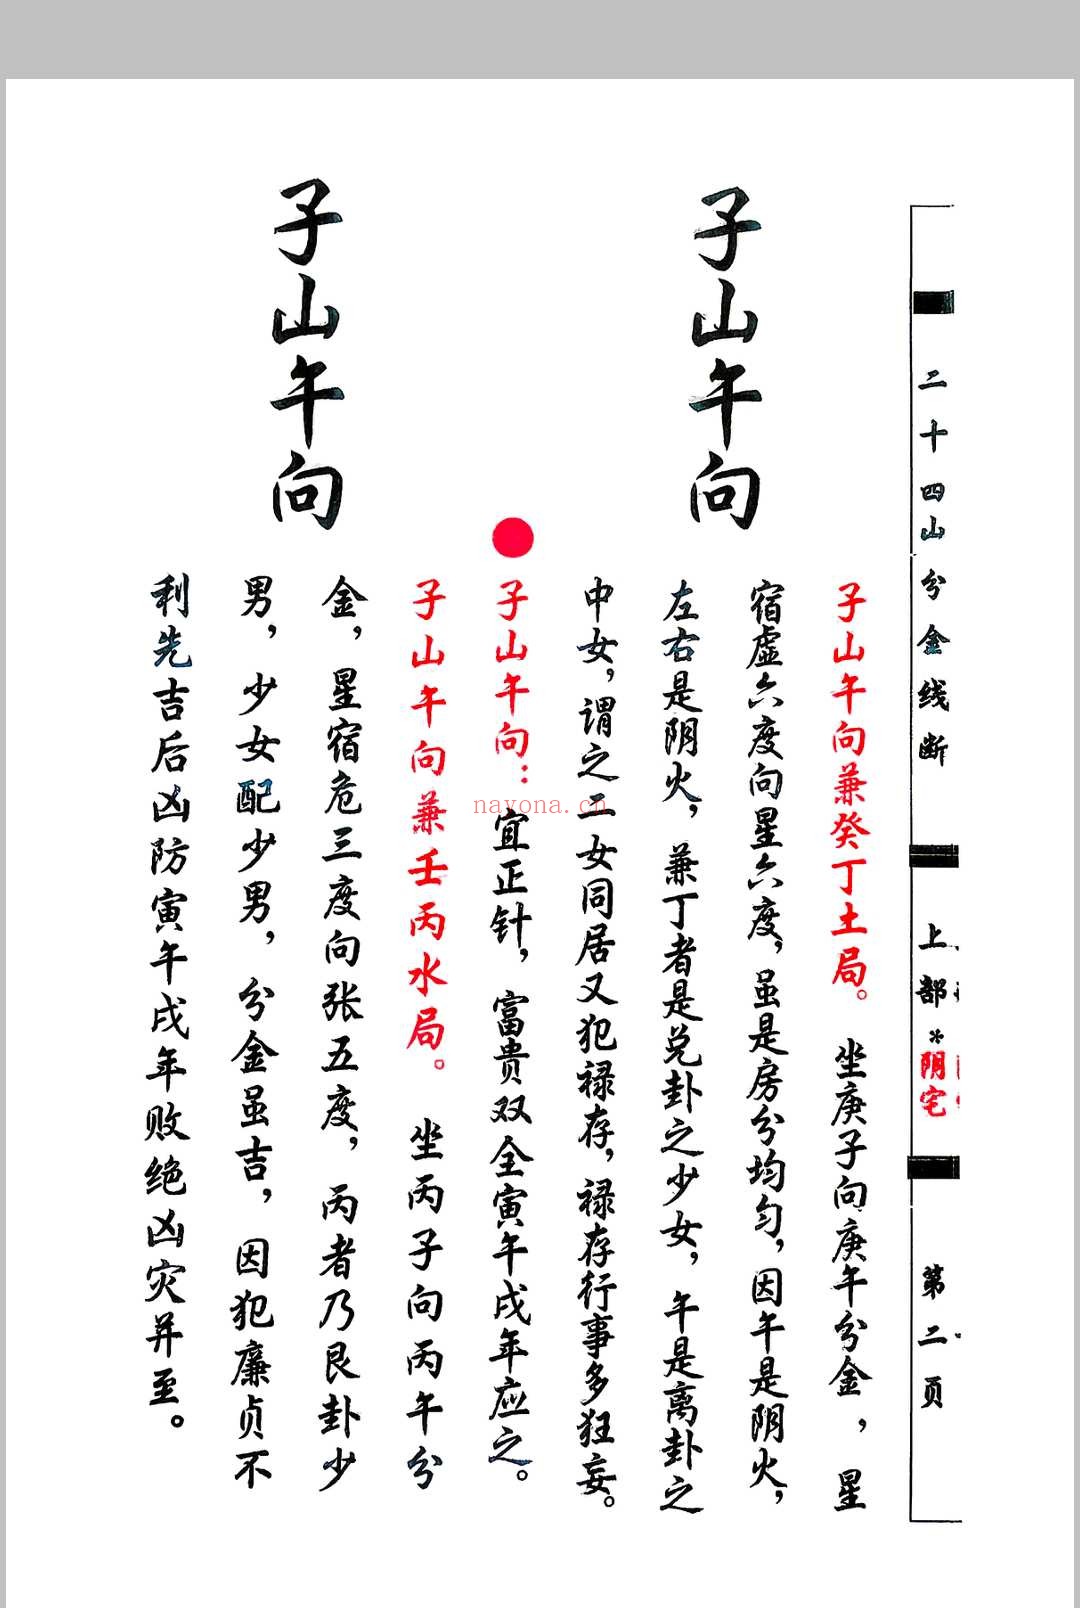 二十四山分金线断
上部*阴宅
第二页
子山午向
子山午向兼癸丁土局。坐庚子向庚午分金，星
宿虚六度向星六度，虽是房分均匀，因午是阴火，
左右是阴火，兼丁者是兑卦之少女，午是离卦之
中女，谓之二女同居又犯禄存，禄存行事多狂妄。
子山午向：宜正针，富贵双全寅午戌年应之。
子山午向
子山午向兼壬丙水局。坐丙子向丙午分
金，星宿危三度向张五度，丙者乃艮卦少
男，少女配少男，分金虽吉，因犯廉贞不
利先吉后凶防寅午戌年败绝凶灾并至。
nayona.cn